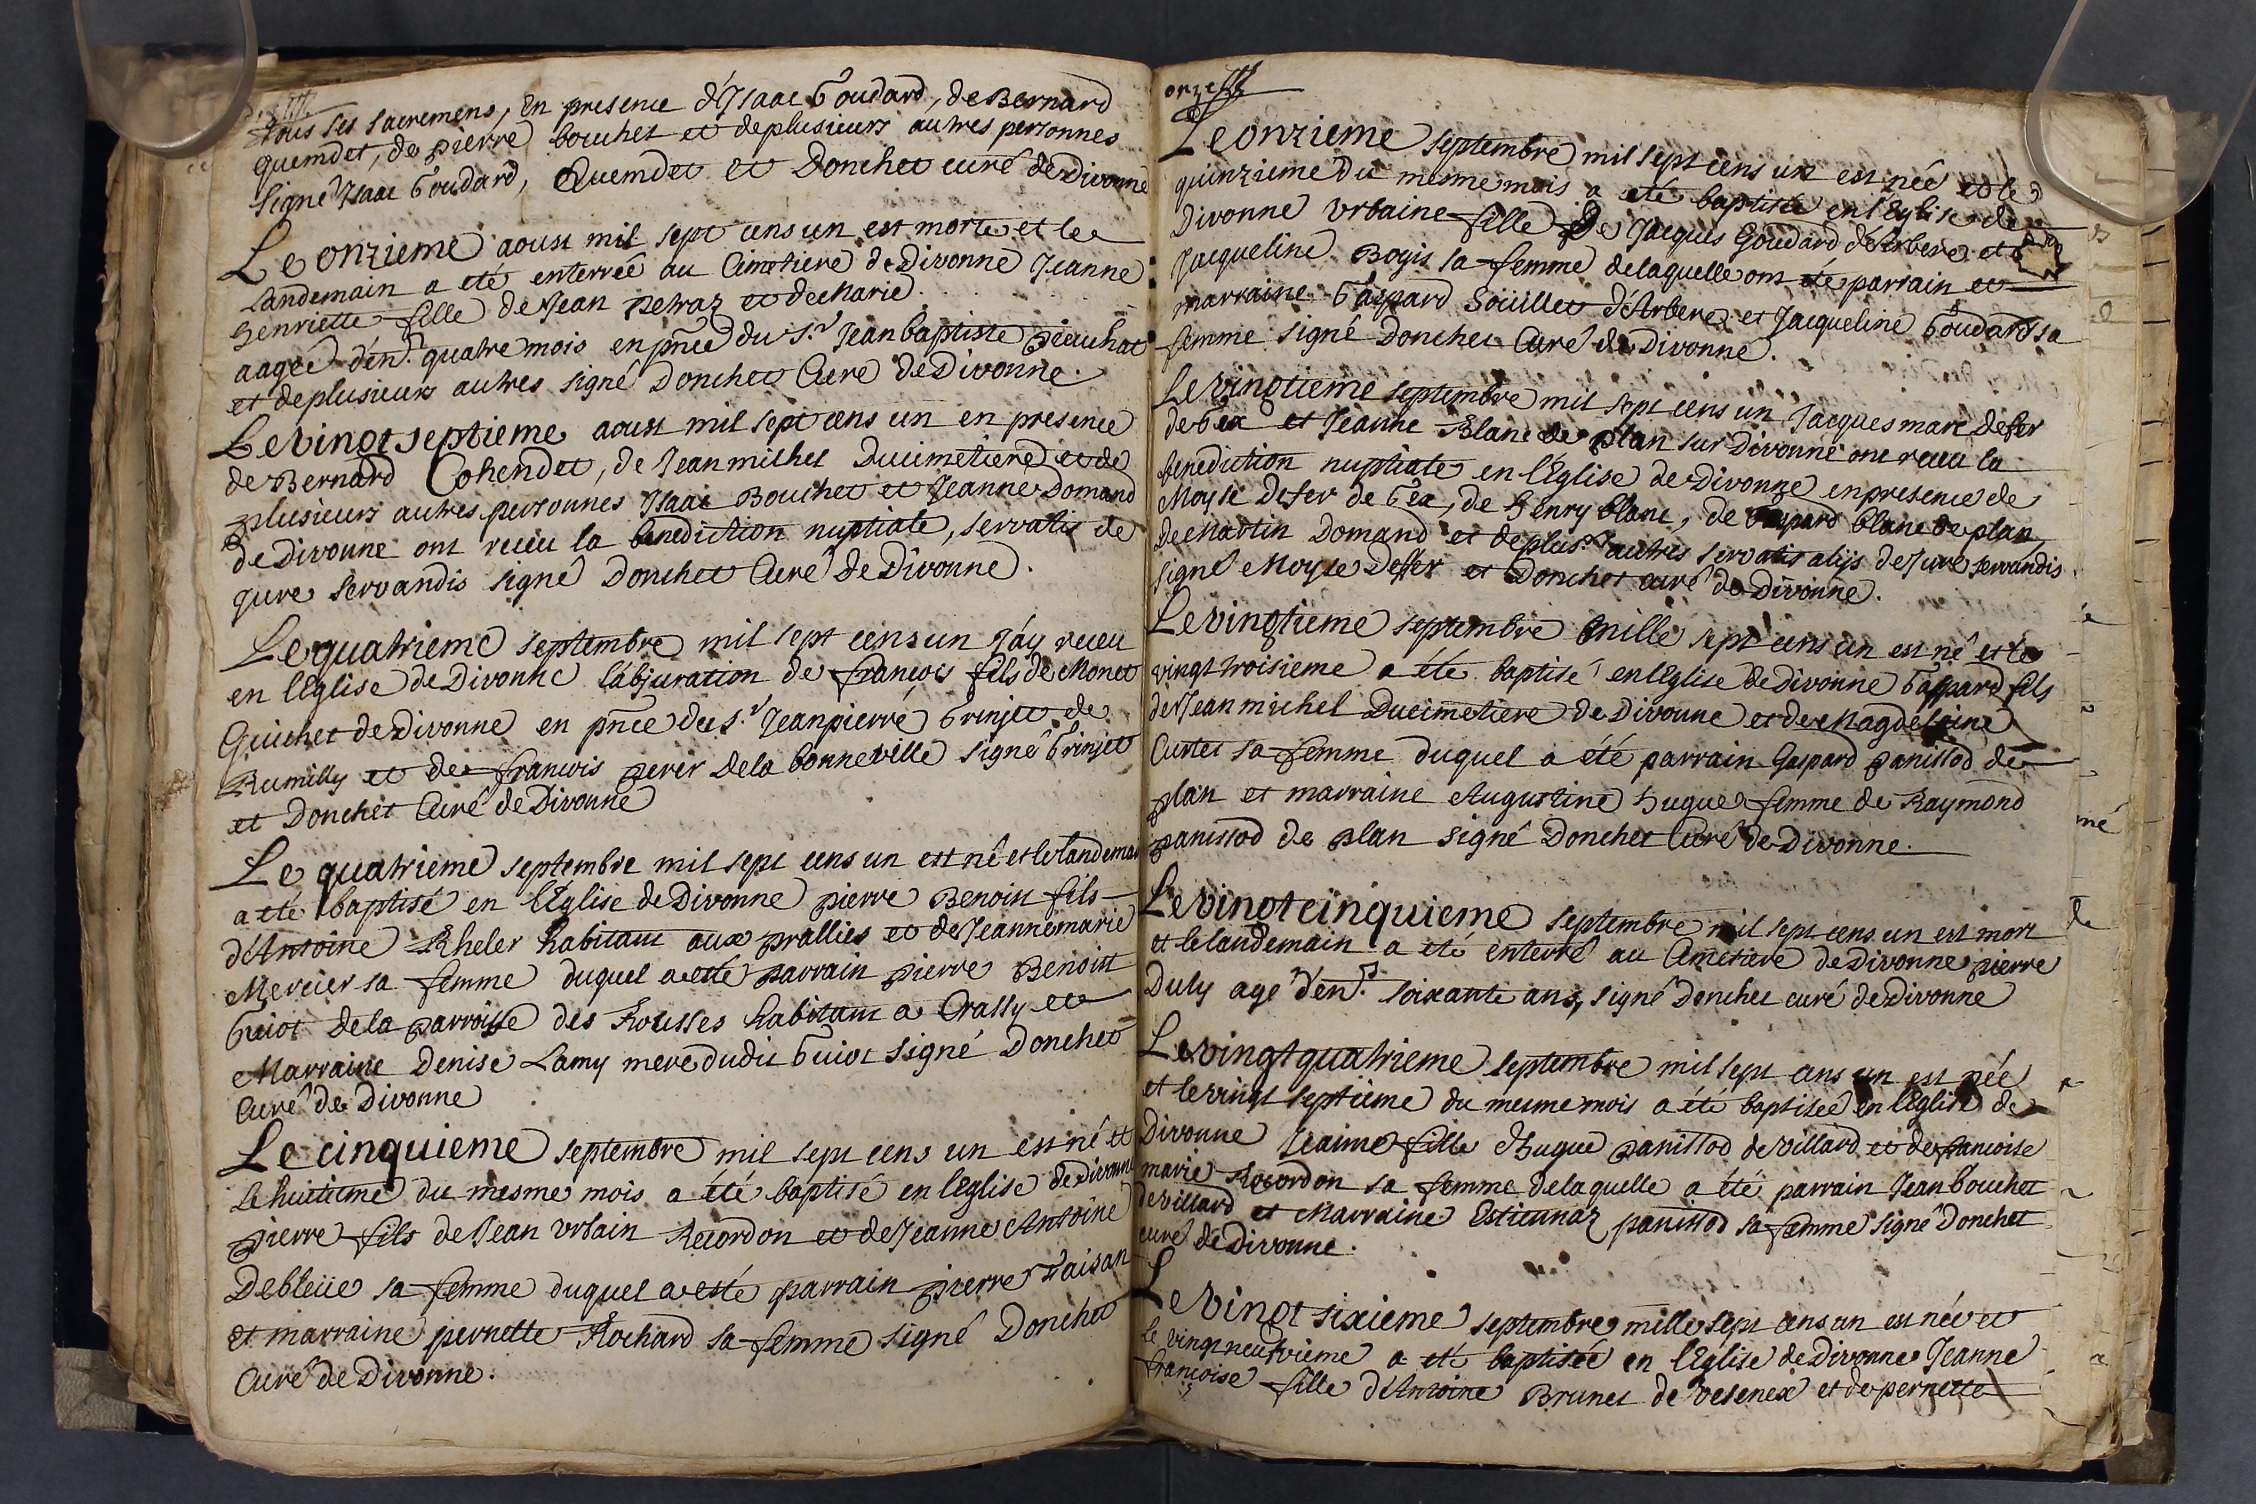 tous ses sacremens, en presence d'Isaac Goudard, de Bernard
quemdet, de pierre bouchet et de plusieurs autres personnes
Signé Isaac Goudard, Quemdet et Donchet curé de Divonne
Le onzieme aoust mil sept cens un est morte et le
landemain a été enterrée au Cimetiere de Divonne Jeanne
henriette fille de Jean petraz et de Marie
aagée d'en.n quatre mois en pnce du s.r Jean baptiste
et de plusieurs autres signé Donchet Curé de Divonne.
Le vingt septieme aoust mil sept cens un en presence
de Bernard Cohendet, de Jean michel Ducimetiere et de
plusieurs autres personnes Isaac Bouchet et Jeanne Domand
de Divonne ont receu la benediction nuptiale, servatis de
jure servandis signé Donchet Curé de Divonne.
Le quatrieme septembre mil sept cens un j'ay receu
en l'Eglise de Divonne l'abjuration de françois fils de Monet
Guichet de Divonne en pnce du s.r Jean pierre Grinjet de
Rumilly et de francois perer de la bonneville signé Grinjet
et Donchet Curé de Divonne
Le quatrieme septembre mil sept cens un est né et le landemain
a été baptisé en l'Eglise de Divonne pierre Benoist fils
d'Antoine Rheler habitant aux prallies et de Jeanne marie
Mercier sa femme duquel a esté parrain pierre Benoist
Guiot de la parroisse des Rousses habitant a Crassy et
Marraine Denise Lamy mere dudit Guiot signé Donchet
Curé de Divonne
Le cinquieme septembre mil sept cens un est né et
le huitieme du mesme mois a été baptisé en l'Eglise de Divonne
pierre fils de Jean urbain Recordon et de Jeanne Antoine
Debleüe sa femme duquel a esté parrain pierre Vaisan
et marraine pernette Rochard sa femme signé Donchet
Curé de Divonne.
onze
Le onzieme septembre mil sept cens un est née et le
quinzieme du mesme mois a été baptisée en l'Eglise de
Divonne Urbaine fille de Jacques Goudard d'Arbere et
Jacqueline Bogis sa femme de laquelle ont été parrain et
marraine Gaspard Soüillet d'Arbere et Jacqueline Goudard sa
femme signé Donchet Curé de Divonne.
Le vingtieme septembre mil sept cens un Jacques marc defer
de Gex et Jeanne Blanc de plan sur Divonne ont receu la
benediction nuptiale en l'Eglise de Divonne en presence de
Moyse Defer de Gex, de henry blanc, de Gaspard blanc de plan,
de Martin Domand et de plus.rs autres servatis alijs de jure servandis
signé Moyse Deffer et Donchet curé de Divonne.
Le vingtieme septembre mille sept cens un est né et le
vingt troisieme a été baptisé en l'Eglise de Divonne Gaspard fils
de Jean michel Ducimetiere de Divonne et de Magdeleine
Curtet sa femme duquel a été parrain Gaspard panissod de
plan et marraine Augustine hugue femme de Raymond
panissod de plan signé Donchet Curé de Divonne.
Le vingt cinquieme septembre mil sept cens un est mort
et le landemain a été enterré au Cimetiere de Divonne pierre
Duly agé d'en.n soixante ans, signé Donchet curé de Divonne
Le vingt quatrieme septembre mil sept cens un est née
et le vingt septieme du mesme mois a été baptisée en l'Eglise de
Divonne Jeaime fille d'hugue panissod de Villard et de francoise
marie Recordon sa femme de laquelle a été parrain Jean bouchet
de Villard et Marraine Estiennaz panissod sa femme signé Donchet
curé de Divonne.
Le vingt sixieme septembre mille sept cens un est née et
le vingt neufvieme a été baptisée en l'Eglise de Divonne Jeanne
françoise fille d'Antoine Brunet de Vesenex et de pernette